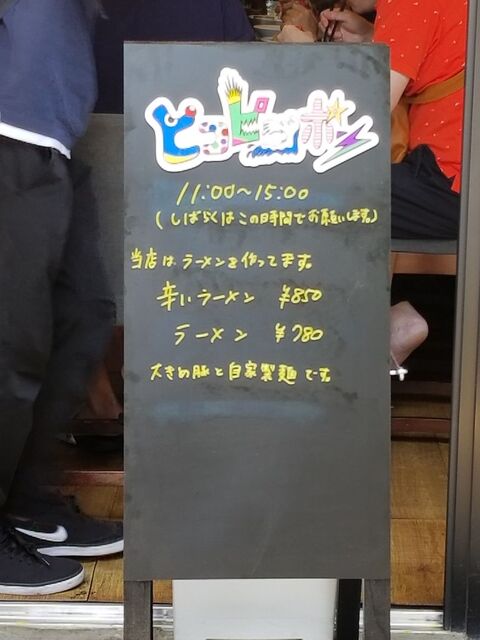 ピコピコポン
11:00～15:00
(しばらくはこの時間でお願いします。)
当店はラーメンを作ってます。
辛いラーメン ¥850
ラーメン ¥780
大きめ豚と自家製麺です。